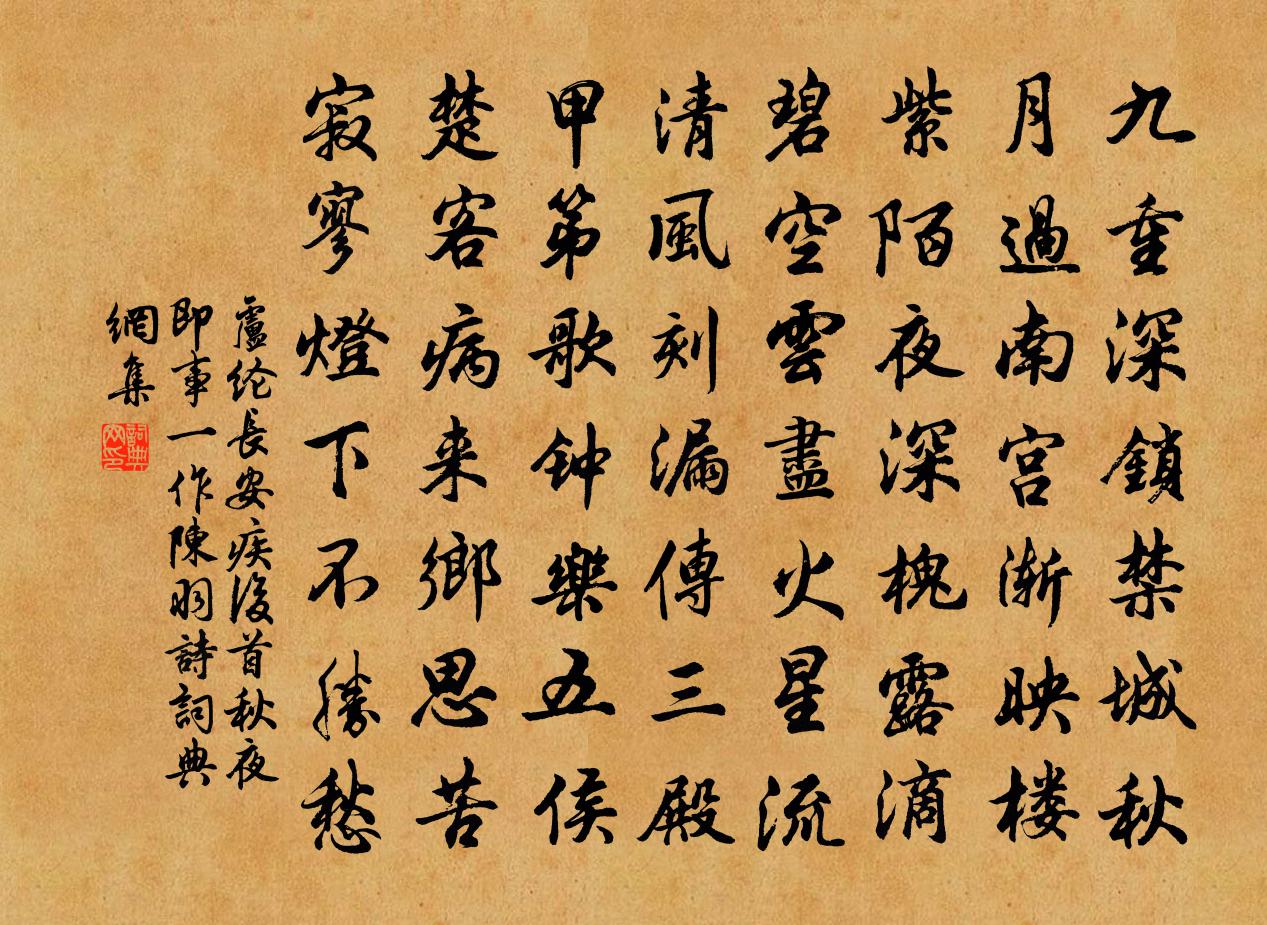 九重深鎖禁城秋
月過南宫渐映楼
紫陌夜深槐露滴
碧空雲盡火星流
清風刻漏傳三殿
甲第歌钟樂五侯
楚客病来鄉思苦
寂寥燈下不勝愁
盧纶長安疾後首秋夜
即事一作陳羽詩詞典
網集
詞典网印